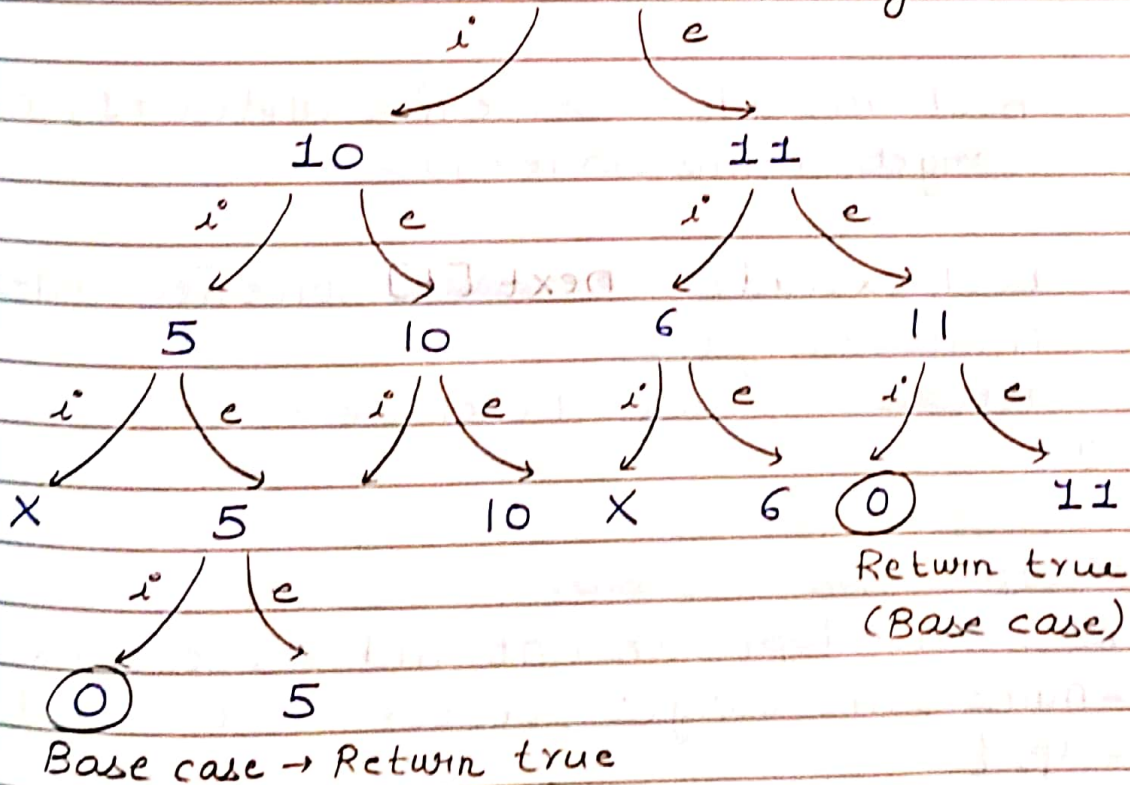 i e
10 11
i e i e
5 10 6 11
i e i e i e i e
X 5 10 X 6 0 11
Return true
(Base case)
i e
0 5
Base case → Return true